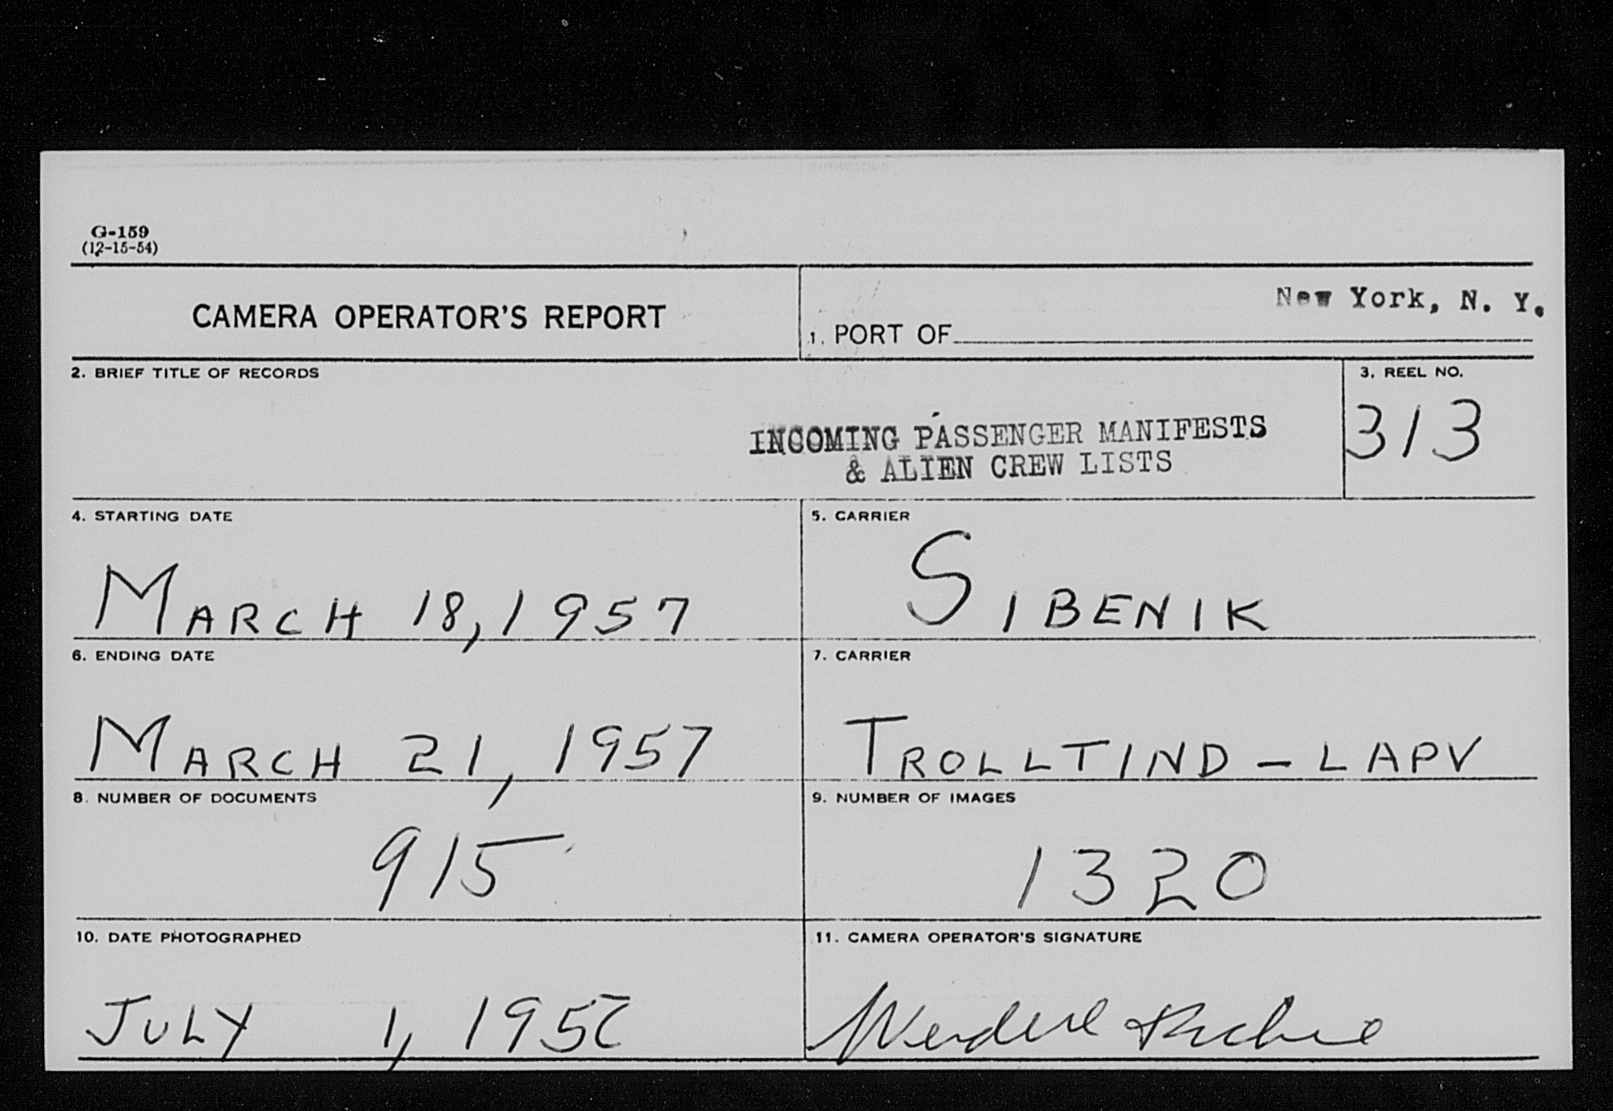 G-159
(12-15-54)
CAMERA OPERATOR'S REPORT
1. PORT OF New York, N. Y.
2. BRIEF TITLE OF RECORDS
INCOMING PASSENGER MANIFESTS
& ALIEN CREW LISTS
3. REEL NO.
313
4. STARTING DATE
MARCH 18, 1957
5. CARRIER
SIBENIK
6. ENDING DATE
MARCH 21, 1957
7. CARRIER
TROLLTIND - LAPV
8. NUMBER OF DOCUMENTS
915
9. NUMBER OF IMAGES
1320
10. DATE PHOTOGRAPHED
JULY 1, 1957
11. CAMERA OPERATOR'S SIGNATURE